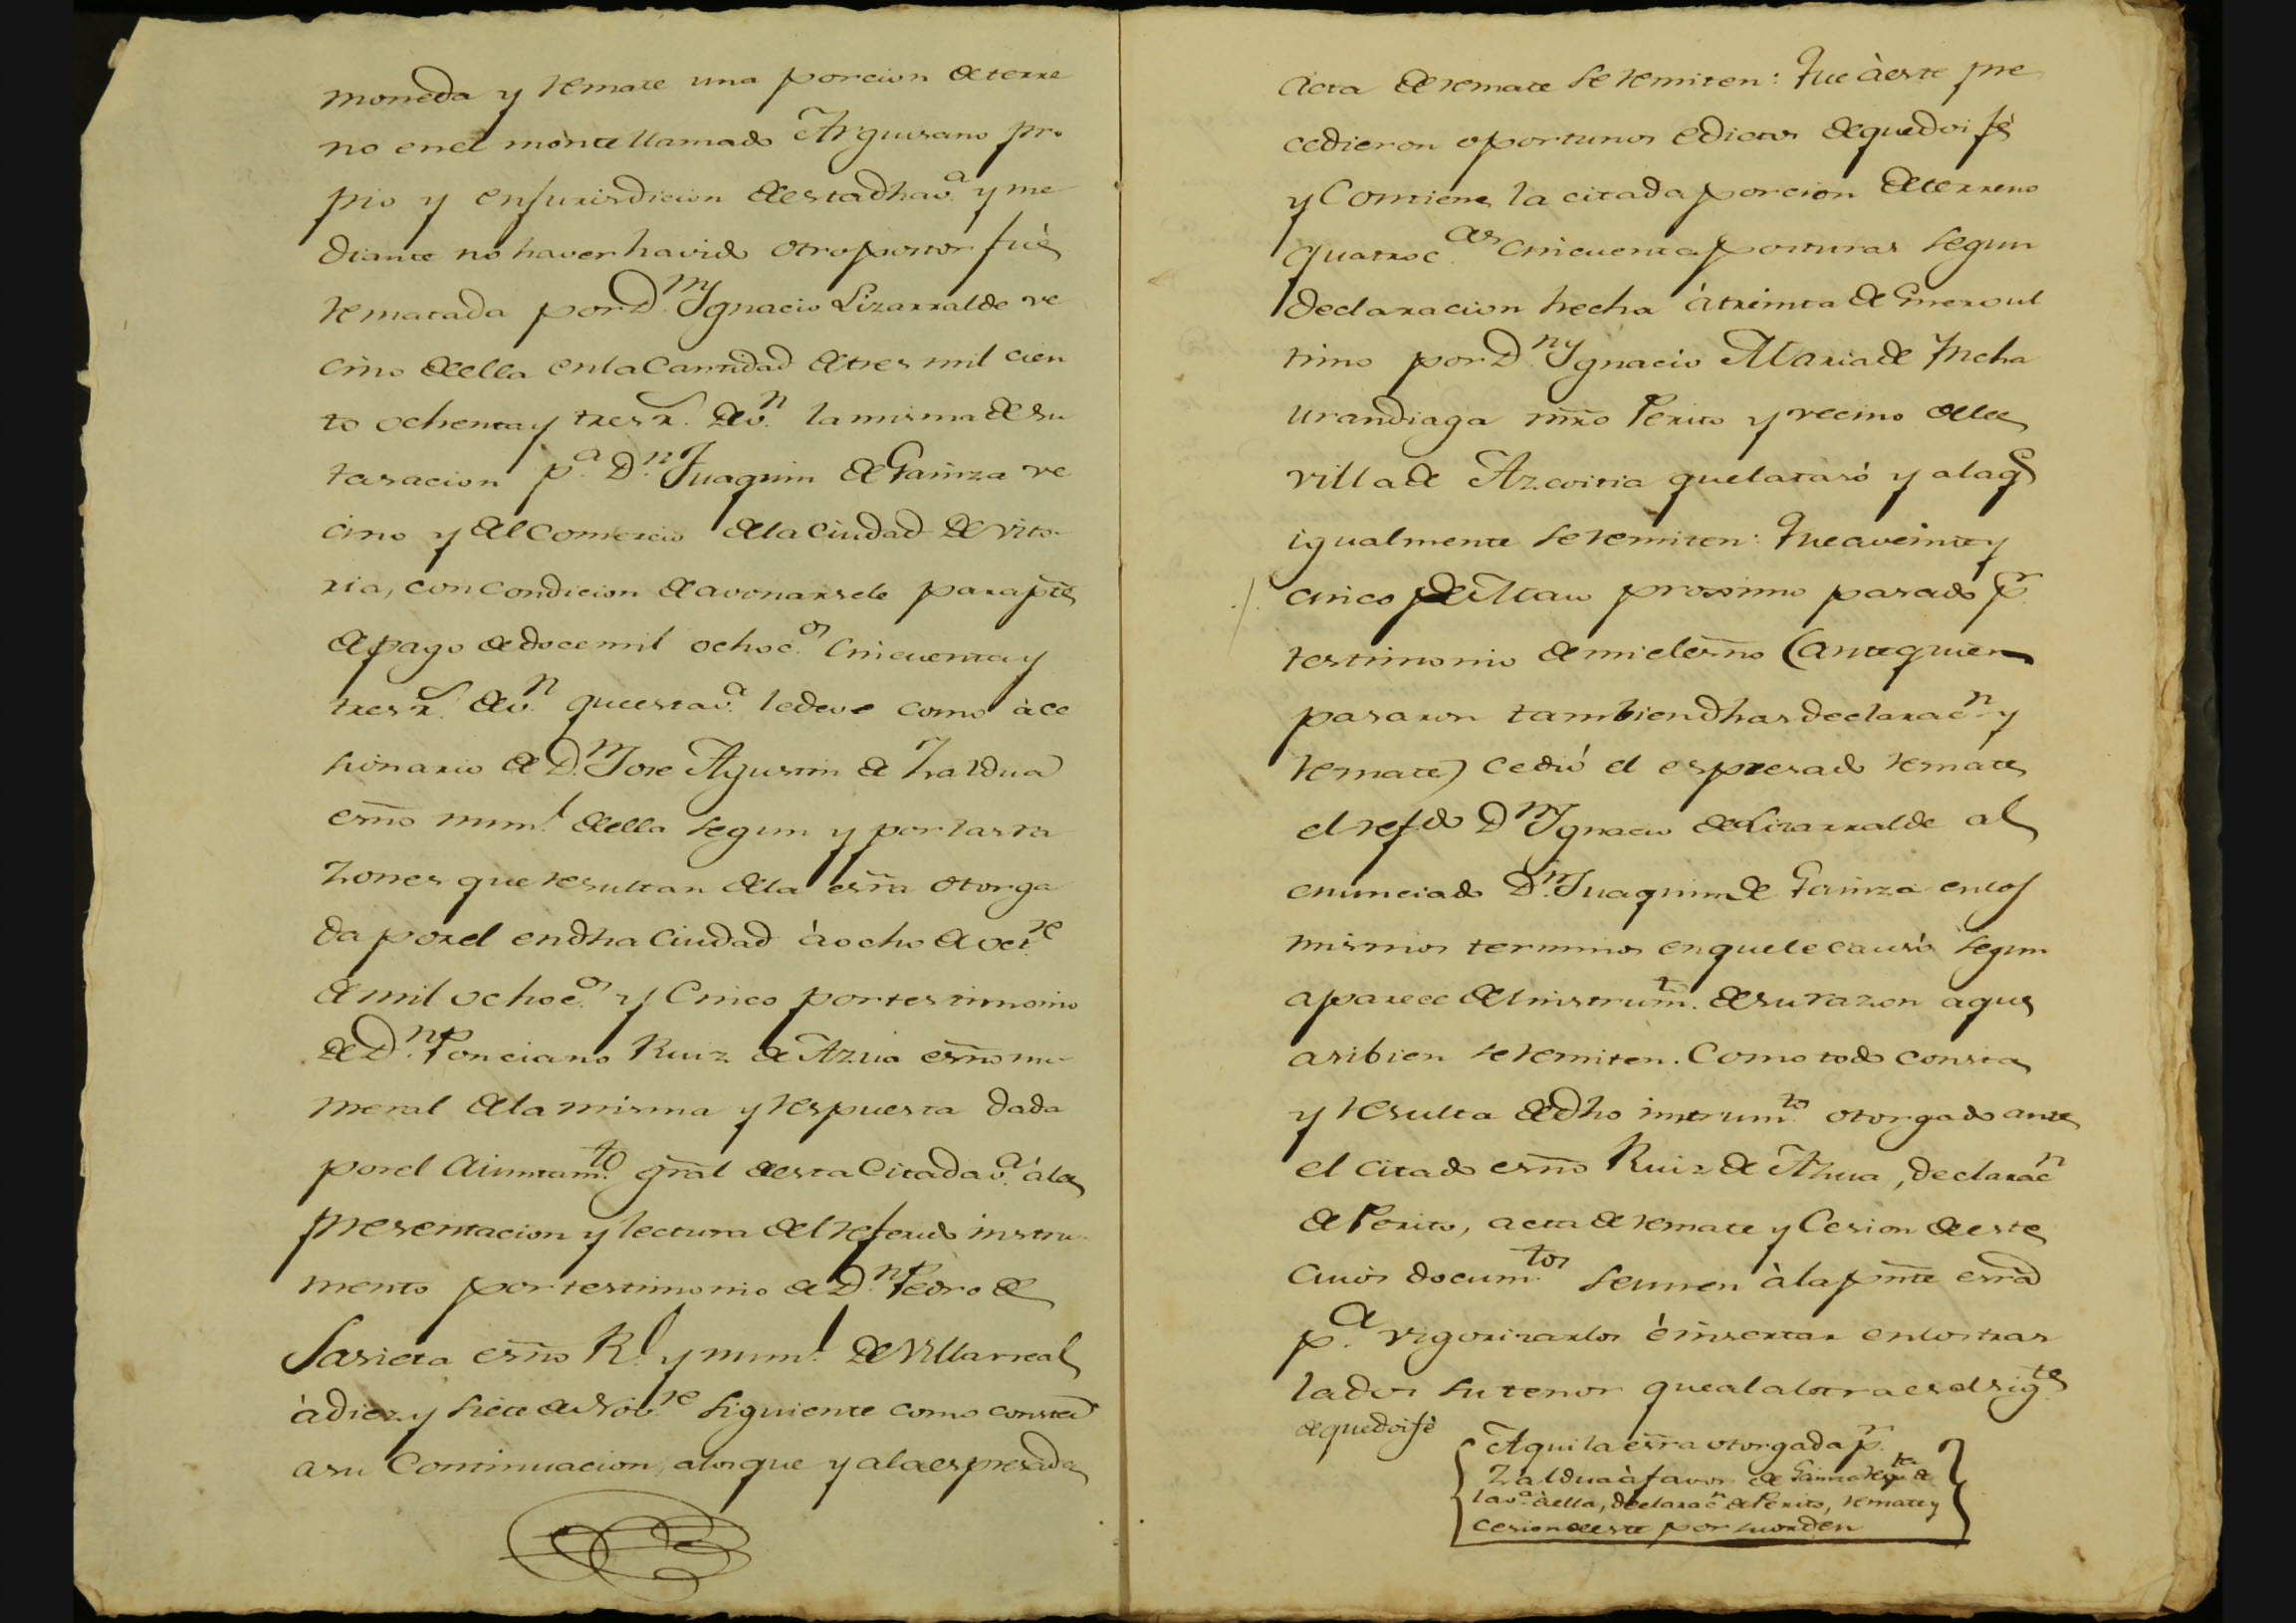 moneda y remate una porcion de terre
no en el monte llamado Arguisano pro
pio y en jurisdicion de esta dha v.ª y me
diante no haver havido otro postor fué
rematada por D.n Ygnacio Lizarralde ve
cino de ella en la cantidad de tres mil cien
to ochenta y tres r.s de v.n la misma de su
tasacion p.ª D.n Juaquin de Gainza ve
cino y del comercio de la Ciudad de Vito-
ria, con condicion de avonarsele para pte
de pago de doce mil ochoc.os cincuenta y
tres r.s de v.n que esta v.ª le deve como à ce
sionario de D.n Jose Agustin de Zaldua
esno num.l de ella segun y por las ra
zones que resultan de la esra otorga
da por el en dha Ciudad à ocho de oct.re
de mil ochoc.os y Cinco por testimonio
de D.n Ponciano Ruiz de Azua esno nu-
meral de la misma y respuesta dada
por el Aiuntam.to gral de esta Citada v.ª à la
presentacion y lectura del referido instru-
mento por testimonio de D.n Pedro de
Sasieta esno R.l y num.l de Villarreal
à diez y siete de Nov.re siguiente como consta
a su Continuacion, a los que y a la espresada
Acta de remate se remiten: Que à este pre
cedieron oportunos edictos de que doi fé
y Contiene la citada porcion de terreno
quatroc.as cincuenta posturas segun
declaracion hecha à treinta de Enero ul
timo por D.n Ygnacio Maria de Yncha
urandiaga mro Perito y vecino de la
villa de Azcoitia que la tasó y a la q.e
igualmente se remiten: Que a veinte y
cinco de Mayo proximo pasado p.r
testimonio de mi el esno (ante quien
pasaron tambien dhas declarac.n y
remate) cedió el espresado remate
el ref.do D.n Ygnacio de Lizarralde al
enunciado D.n Juaquin de Gainza en los
mismos terminos en que le causó segun
aparece del instrum.to de su razon a que
asibien se remiten. Como todo consta
y resulta de dho instrum.to otorgado ante
el citado esno Ruiz de Azua, declarac.n
de Perito, acta de remate y Cesion de este
cuios docum.tos se unen à la pnte esra
p.ª vigorizarlos é insertar en los tras
lados su tenor que a la letra es el sig.te
de que doi fé
Aqui la esra otorgada p.r
Zaldua à favor de Gainza resp.ta de
la v.ª à ella, declarac.n de Perito, remate y
cesion de este por su orden